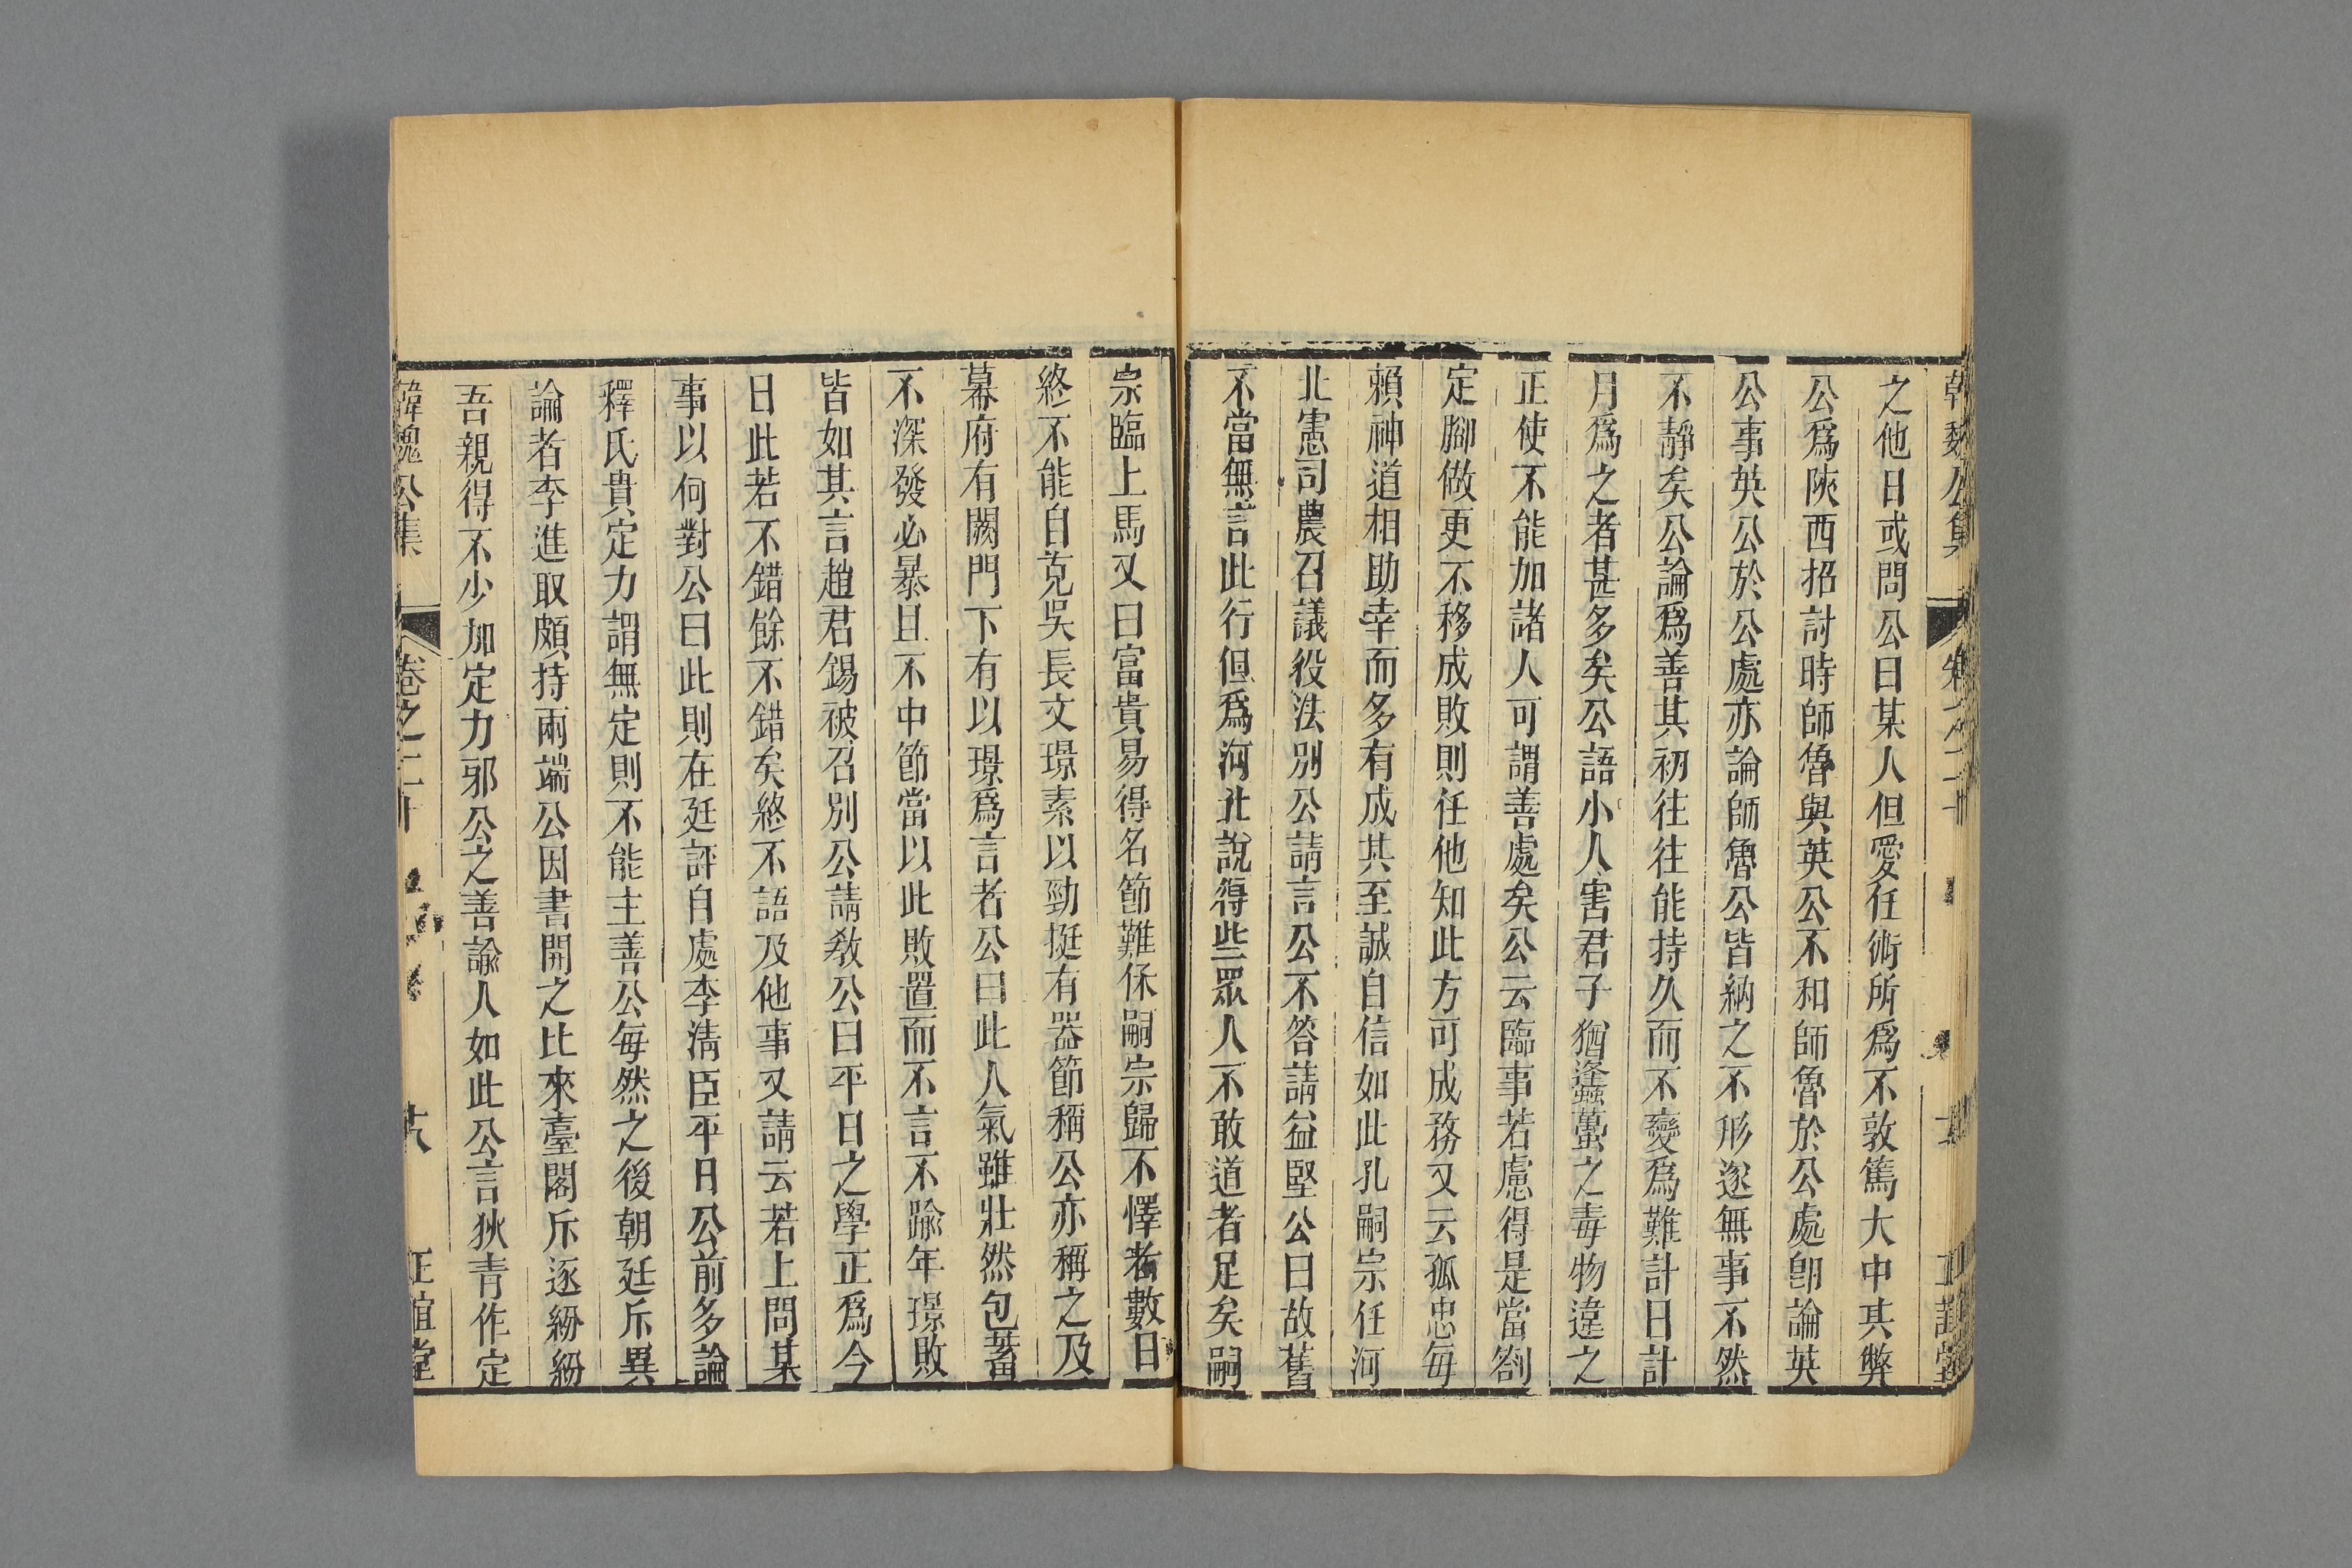 韓魏公集 卷之二十 正誼堂
之他日或問公曰某人但愛任術所爲不敦篤大中其弊
公爲陝西招討時師魯與英公不和師魯於公處卽論英
公事英公於公處亦論師魯公皆納之不形遂無事不然
不靜矣公論爲善其初往往能持久而不變爲難計日計
月爲之者甚多矣公語小人害君子猶蜂蠆之毒物違之
正使不能加諸人可謂善處矣公云臨事若慮得是當劄
定腳做更不移成敗則任他知此方可成務又云孤忠每
賴神道相助幸而多有成其至誠自信如此孔嗣宗任河
北憲司農召議役法別公請言公不答請益堅公曰故舊
不當無言此行但爲河北說得些眾人不敢道者足矣嗣
宗臨上馬又曰富貴易得名節難保嗣宗歸不懌者數日
終不能自克吳長文璟素以勁挺有器節稱公亦稱之及
幕府有闕門下有以璟爲言者公曰此人氣雖壯然包蓄
不深發必暴且不中節當以此敗置而不言不踰年璟敗
皆如其言趙君錫被召別公請教公曰平日之學正爲今
日此若不錯餘不錯矣終不語及他事又請云若上問某
事以何對公曰此則在廷評自處李清臣平日公前多論
釋氏貴定力謂無定則不能主善公每然之後朝廷斥異
論者李進取頗持兩端公因書開之比來臺閣斥逐紛紛
吾親得不少加定力邪公之善諭人如此公言狄青作定
韓魏公集 卷之二十 六 正誼堂